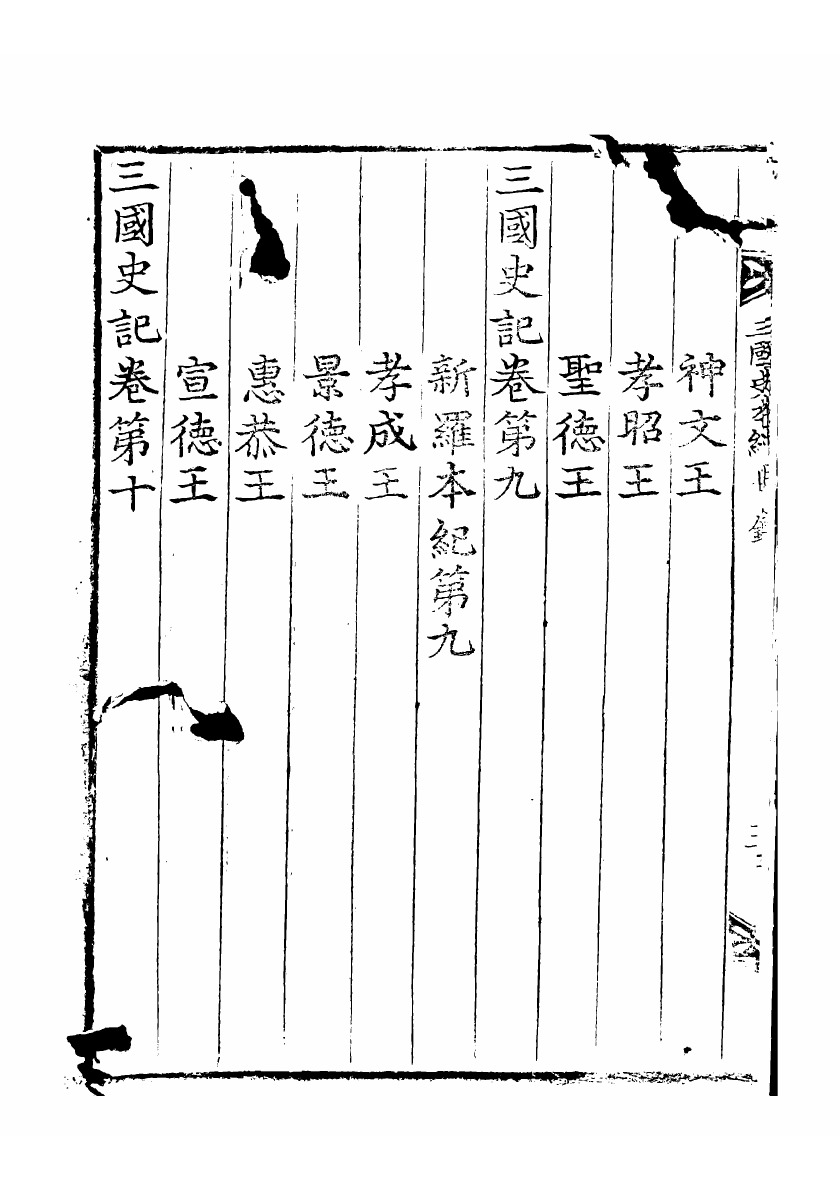 神文王
孝昭王
聖德王
三國史記卷第九
新羅本紀第九
孝成王
景德王
惠恭王
宣德王
三國史記卷第十